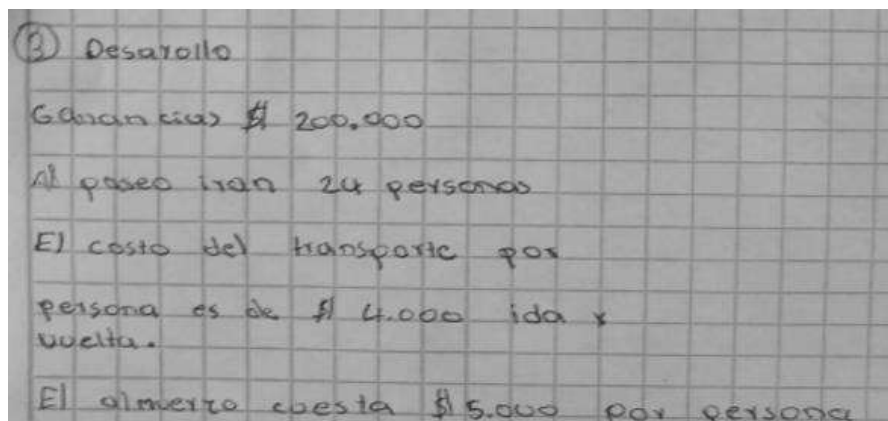 ③ Desarollo
Ganancias $ 200.000
Al paseo iran 24 personas
El costo del transporte por
persona es de $ 4.000 ida y
vuelta.
El almuerzo cuesta $ 5.000 por persona